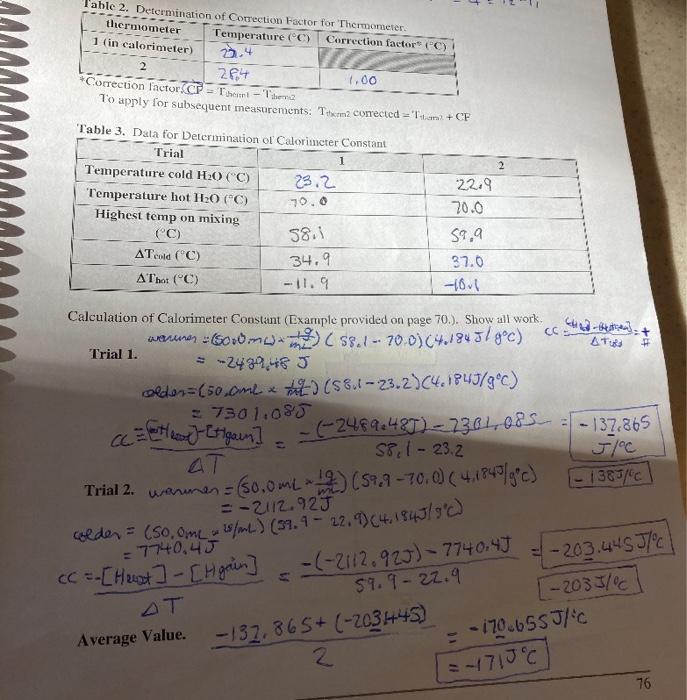 Table 2. Determination of Correction Factor for Thermometer.
thermometer Temperature (°C) Correction factor* (°C)
1 (in calorimeter) .4
2 28.4 1.00
*Correction factor, CF = Ttherm1 – Ttherm2
To apply for subsequent measurements: Ttherm2 corrected = Ttherm2 + CF
Table 3. Data for Determination of Calorimeter Constant
Trial 1 2
Temperature cold H2O (°C) 23.2 22.9
Temperature hot H2O (°C) 70.0 70.0
Highest temp on mixing (°C) 58.1 59.9
ΔTcold (°C) 34.9 37.0
ΔThot (°C) -11.9 -10.1
Calculation of Calorimeter Constant (Example provided on page 70.). Show all work.
warmer = (50.0mL × 1g/mL) (58.1 - 70.0)(4.184 J/g°C)
Trial 1.
= -2489.48 J
colder = (50.0mL × 1g/mL) (58.1 - 23.2)(4.184J/g°C)
= 7301.08J
CC = -[Hlost] - [Hgain] / ΔT = -(-2489.48J) - 7301.08J / 58.1 - 23.2 = -137.865 J/°C
-138J/°C
Trial 2. warmer = (50.0mL × 1g/mL) (59.9 - 70.0) (4.184J/g°C)
= -2112.92J
colder = (50.0mL × 1g/mL) (59.9 - 22.9)(4.184J/g°C)
= 7740.4J
CC = -[Hlost] - [Hgain] / ΔT = -(-2112.92J) - 7740.4J / 59.9 - 22.9 = -203.445J/°C
-203J/°C
Average Value. -137.865 + (-203.445) / 2 = -170.655J/°C
= -171J°C
76